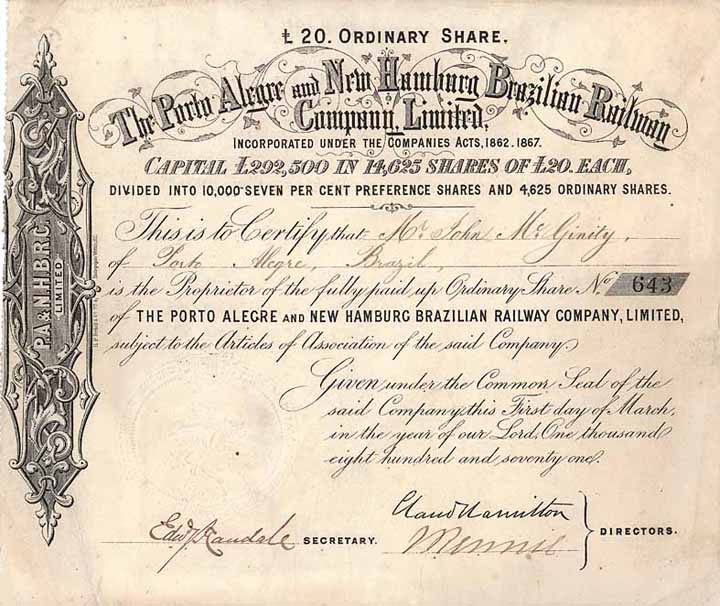 Ł 20. ORDINARY SHARE.
The Porto Alegre and New Hamburg Brazilian Railway
Company, Limited.
INCORPORATED UNDER THE COMPANIES ACTS, 1862.1867.
CAPITAL Ł292,500 IN 14,625 SHARES OF Ł20. EACH,
DIVIDED INTO 10,000 SEVEN PER CENT PREFERENCE SHARES AND 4,625 ORDINARY SHARES.
This is to Certify that Mr. John McGinity,
of Porto Alegre, Brazil,
is the Proprietor of the fully paid up Ordinary Share No. 643
of THE PORTO ALEGRE AND NEW HAMBURG BRAZILIAN RAILWAY COMPANY, LIMITED,
subject to the Articles of Association of the said Company.
Given under the Common Seal of the
said Company, this First day of March,
in the year of our Lord, One thousand
eight hundred and seventy one.
Claud Hamilton
SECRETARY.
DIRECTORS.
P.A. & N.H.B.R.C.
LIMITED